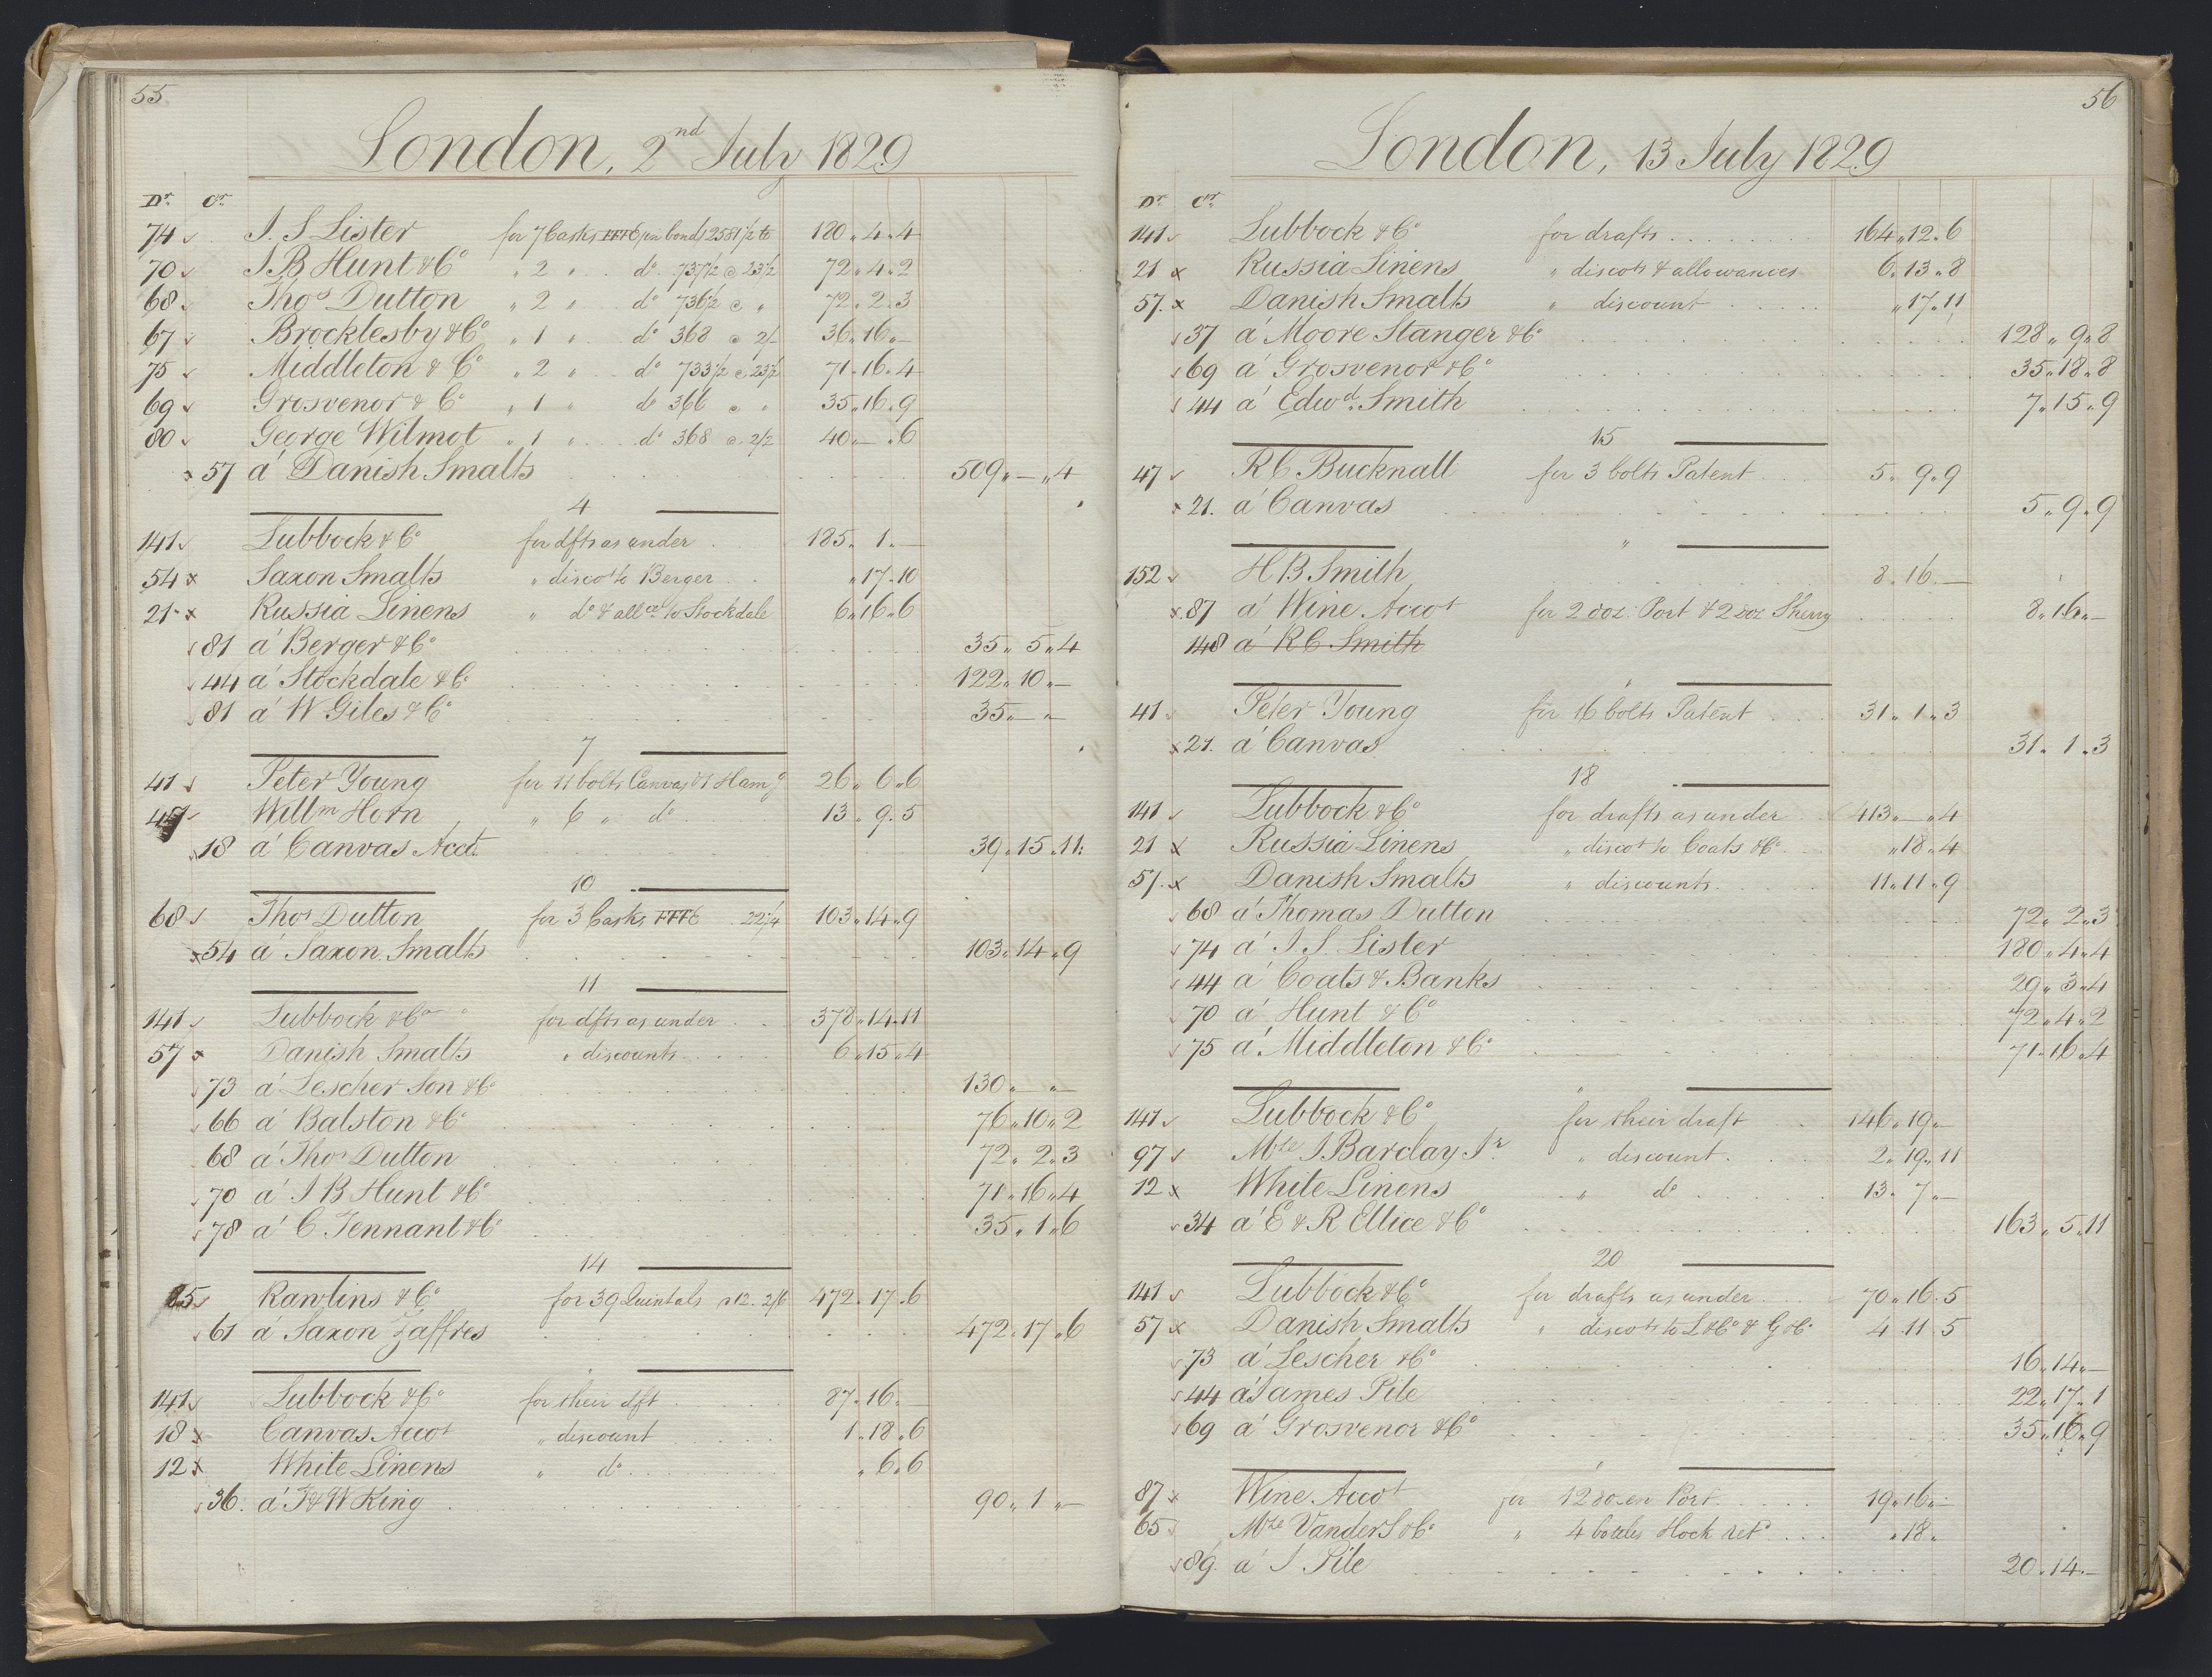 55
London, 2nd July 1829
Dr. Cr.
74 J. S Lister for 7 Casks FFFC in bond 2581 1/2 to 180 „ 4 „ 4
70 J. B Hunt & Co „ 2 „ do 737 1/2 @ 23 1/2 72 „ 4 „ 2
68 Thos Dutton „ 2 „ do 736 1/2 @ „ 72 „ 2 „ 3
67 Brocklesby & Co „ 1 „ do 368 @ 2/- 36 „ 16 „ —
75 Middleton & Co „ 2 „ do 733 1/2 @ 23 1/2 71 „ 16 „ 4
69 Grosvenor & Co „ 1 „ do 366 @ „ 35 „ 16 „ 9
80 George Wilmot „ 1 „ do 368 @ 2/2 40 „ — „ 6
57 a' Danish Smalts 509 „ — „ 4
4
141 Lubbock & Co for dfts as under 185 „ 1 „ —
54 Saxon Smalts „ discot to Berger „ 17 „ 10
21 Russia Linens „ do & allce to Stockdale 6 „ 16 „ 6
81 a' Berger & Co 35 „ 5 „ 4
44 a' Stockdale & Co 122 „ 10 „ —
81 a' W Giles & Co 35 „ — „ —
7
41 Peter Young for 11 bolts Canvas & 1 Hamg 26 „ 6 „ 6
Willm Horn „ 6 „ do 13 „ 9 „ 5
18 a' Canvas Acct. 39 „ 15 „ 11
10
68 Thos Dutton for 3 Casks FFFC 22 1/4 103 „ 14 „ 9
54 a' Saxon Smalts 103 „ 14 „ 9
11
141 Lubbock & Co for dfts as under 378 „ 14 „ 11
57 Danish Smalts „ discounts 6 „ 15 „ 4
73 a' Lescher Son & Co 130 „ — „ —
66 a' Balston & Co 76 „ 10 „ 2
68 a' Thos Dutton 72 „ 2 „ 3
70 a' J B Hunt & Co 71 „ 16 „ 4
78 a' C. Tennant & Co 35 „ 1 „ 6
14
85 Rawlins & Co for 39 Quintals a 12. 2/6 472 „ 17 „ 6
61 a' Saxon Zaffres 472 „ 17 „ 6
„
141 Lubbock & Co for their dft 87 „ 16 „ —
18 Canvas Accot „ discount 1 „ 18 „ 6
12 White Linens „ do „ 6 „ 6
36 a' J & W King 90 „ 1 „ —
56
London, 13 July 1829
Dr. Cr.
141 Lubbock & Co for drafts 164 „ 12 „ 6
21 Russia Linens „ discots & allowances 6 „ 13 „ 8
57 Danish Smalts „ discount „ 17 „ 11
37 a' Moore Stanger & Co 128 „ 9 „ 8
69 a' Grosvenor & Co 35 „ 18 „ 8
44 a' Edwd. Smith 7 „ 15 „ 9
15
47 R C Bucknall for 3 bolts Patent 5 „ 9 „ 9
21. a' Canvas 5 „ 9 „ 9
„
152 H B Smith 8 „ 16 „ —
87 a' Wine Accot for 2 doz: Port & 2 doz Sherry 8 „ 16 „ —
148 a' R C Smith
„
41 Peter Young for 16 bolts Patent 31 „ 1 „ 3
21. a' Canvas 31 „ 1 „ 3
18
141 Lubbock & Co for drafts as under 413 „ — „ 4
21 Russia Linens „ discot to Coats & Co „ 18 „ 4
57. Danish Smalts „ discounts 11 „ 11 „ 9
68 a' Thomas Dutton 72 „ 2 „ 3
74 a' J. S. Lister 180 „ 4 „ 4
44 a' Coats & Banks 29 „ 3 „ 4
70 a' Hunt & Co 72 „ 4 „ 2
75 a' Middleton & Co 71 „ 16 „ 4
„
141 Lubbock & Co for their draft 146 „ 19 „ —
97 Mdse J. Barclay Jr „ discount 2 „ 19 „ 11
12 White Linens „ do 13 „ 7 „ —
34 a' E & R Ellice & Co 163 „ 5 „ 11
20
141 Lubbock & Co for drafts as under 70 „ 16 „ 5
57 Danish Smalts „ discots to L & Co & G & Co 4 „ 11 „ 5
73 a' Lescher & Co 16 „ 14 „ —
44 a' James Pile 22 „ 17 „ 1
69 a' Grosvenor & Co 35 „ 16 „ 9
„
87 Wine Accot for 12 dozen Port 19 „ 16 „ —
65 Mdse Vander S & Co „ 4 bottles Hock retd „ 18 „
89 a' J Pile 20 „ 14 „ —